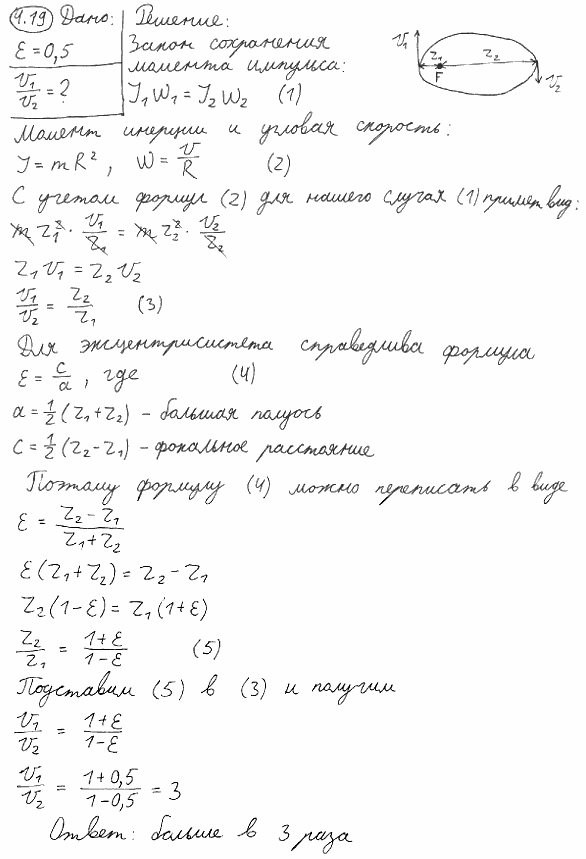 4.19 Дано: Решение:
ε = 0,5 Закон сохранения
момента импульса:
v₁/v₂ = ? J₁W₁ = J₂W₂ (1)
v₁ r₁ r₂ F v₂
Момент инерции и угловая скорость:
J = mR², W = v/R (2)
С учетом формул (2) для нашего случая (1) примет вид:
m r₁² · v₁/r₁ = m r₂² · v₂/r₂
r₁v₁ = r₂v₂
v₁/v₂ = r₂/r₁ (3)
Для эксцентрисистета справедлива формула
ε = c/a, где (4)
a = ½(r₁+r₂) – большая полуось
c = ½(r₂-r₁) – фокальное расстояние
Поэтому формулу (4) можно переписать в виде
ε = (r₂-r₁)/(r₁+r₂)
ε(r₁+r₂) = r₂-r₁
r₂(1-ε) = r₁(1+ε)
r₂/r₁ = (1+ε)/(1-ε) (5)
Подставим (5) в (3) и получим
v₁/v₂ = (1+ε)/(1-ε)
v₁/v₂ = (1+0,5)/(1-0,5) = 3
Ответ: больше в 3 раза